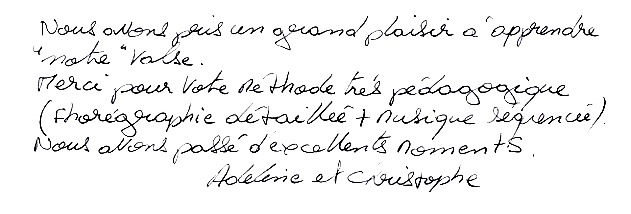 Nous avons pris un grand plaisir à apprendre
"notre" Valse.
Merci pour Votre Méthode très pédagogique
(Chorégraphie détaillée + Musique séquencée).
Nous avons passé d'excellents Moments.
Adeline et Christophe